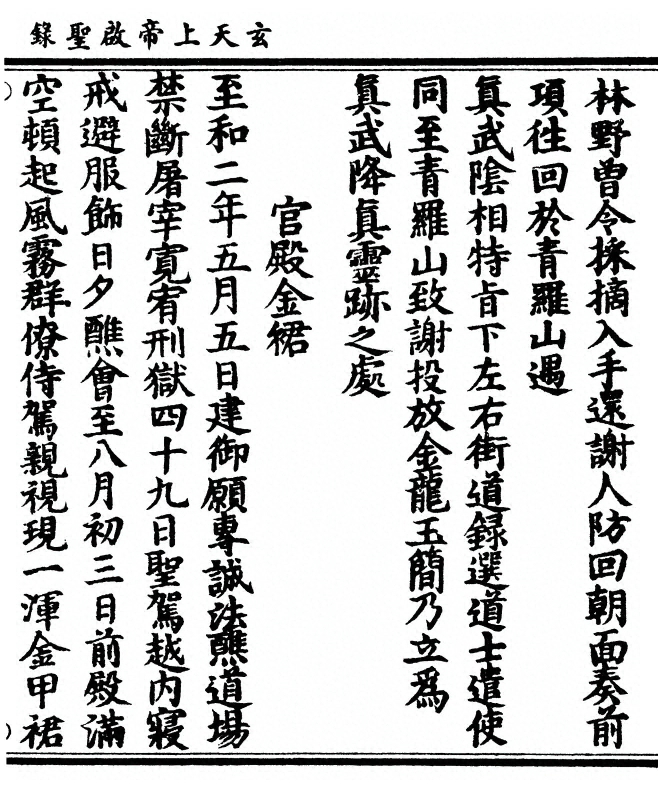 玄天上帝啟聖錄
林野曽令採摘入手還謝人防回朝面奏前
項徃回於青羅山遇
真武陰相特㫖下左右街道録選道士遣使
同至青羅山致謝投放金龍玉簡乃立為
真武降真靈跡之處
官殿金裙
至和二年五月五日建御願專誠法醮道場
禁斷屠宰寛宥刑獄四十九日聖駕越内寢
戒避服飾日夕醮會至八月初三日前殿滿
空頓起風霧群僚侍駕親視現一渾金甲裙